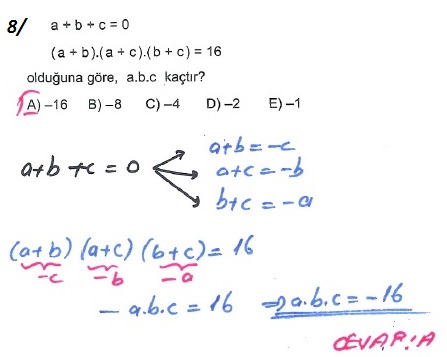 8/ a + b + c = 0
(a + b).(a + c).(b + c) = 16
olduğuna göre, a.b.c kaçtır?
A) –16 B) –8 C) –4 D) –2 E) –1
a+b+c = 0
a+b = -c
a+c = -b
b+c = -a
(a+b) (a+c) (b+c) = 16
-c -b -a
- a.b.c = 16 ⇒ a.b.c = -16
CEVAP: A